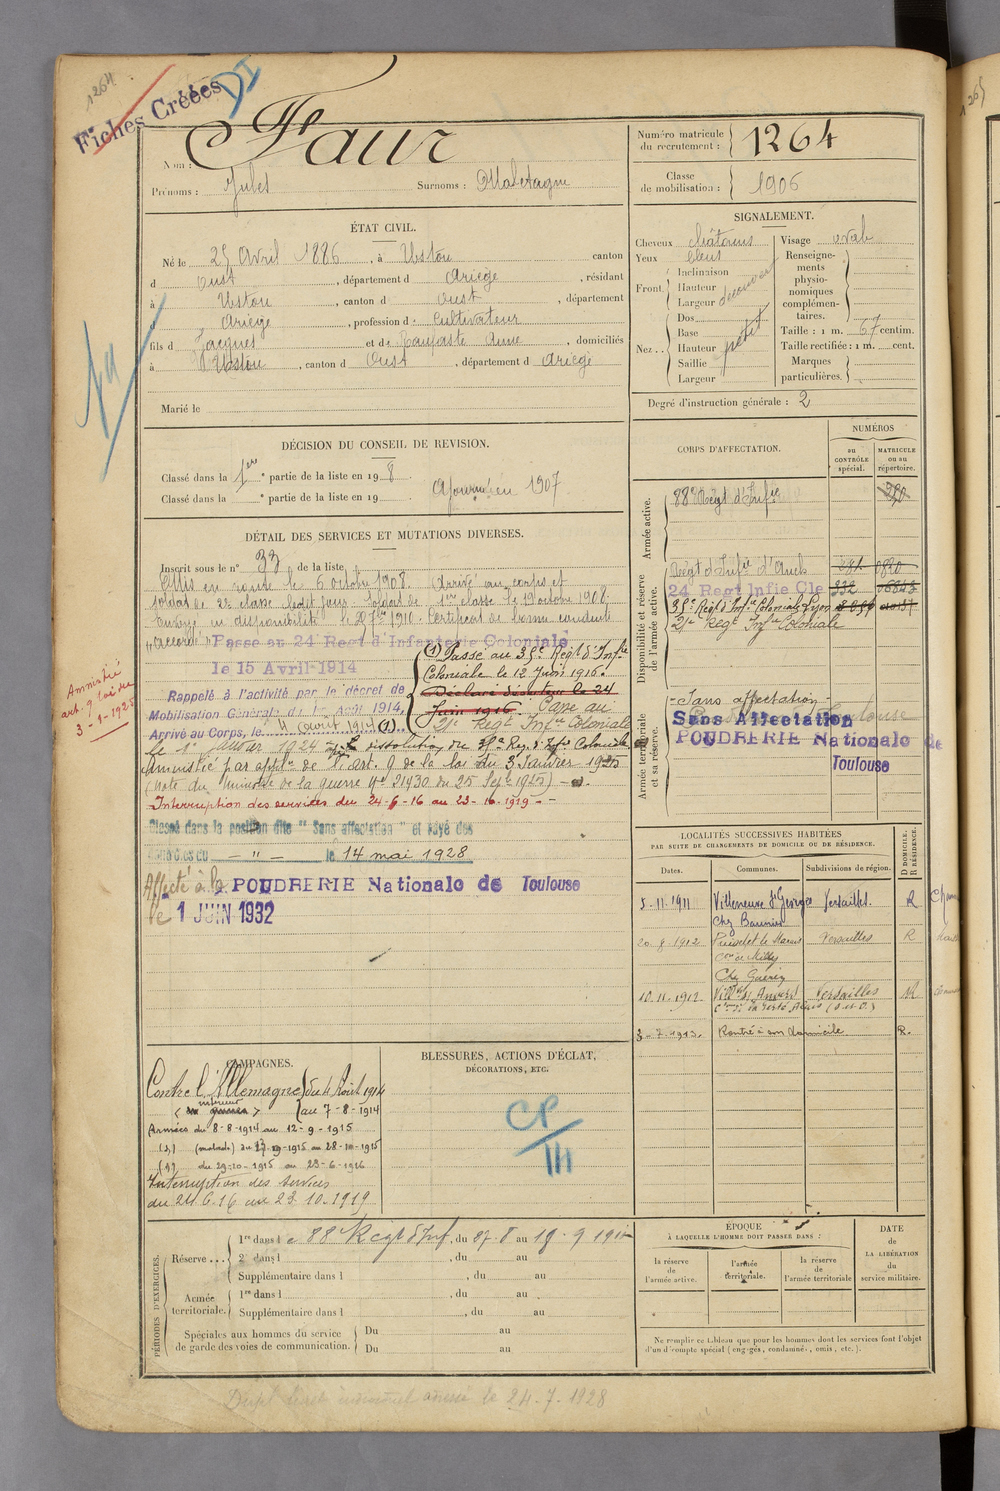 1264
Fiches Créées
DI
Nom : Faur
Prénoms : Jules Surnoms :
Numéro matricule du recrutement : 1264
Classe de mobilisation : 1906
ÉTAT CIVIL.
Né le 25 Avril 1886, à Ustou canton
d Oust, département d Ariège, résidant
à Ustou, canton d Oust, département
d Ariège, profession d cultivateur
fils d Jacques et de Anne, domiciliés
à Ustou, canton d Oust, département d Ariège
Marié le
SIGNALEMENT.
Cheveux châtains
Yeux bleus
Front. Inclinaison
Hauteur
Largeur découvert
Nez .. Dos
Base
Hauteur petit
Saillie
Largeur
Visage ovale
Renseignements physionomiques complémentaires.
Taille : 1 m. 67 centim.
Taille rectifiée : 1 m. cent.
Marques particulières.
Degré d'instruction générale : 2
DÉCISION DU CONSEIL DE REVISION.
Classé dans la 1ère partie de la liste en 1908.
Classé dans la partie de la liste en 19
Ajourné en 1907
DÉTAIL DES SERVICES ET MUTATIONS DIVERSES.
Inscrit sous le n° 33 de la liste
Mis en route le 6 octobre 1908. Arrivé au corps et
soldat de 2e classe ledit jour. Soldat de 1ère classe le 19 octobre 1908.
Envoyé en disponibilité le 27 1910. Certificat de bonne conduite
"accordé"
Passé au 24 Regt d'Infanterie Coloniale
le 15 Avril 1914
Rappelé à l'activité par le décret de
Mobilisation Générale du 1er Août 1914,
Arrivé au Corps, le 4 août 1914 (1)
(1) Passé au 35e Régt d'Infie
Coloniale le 12 Juin 1916.
Déclaré déserteur le 24
Juin 1916. Passé au
21e Régt Infie Coloniale
le 1er Janvier 1924 dissolution du 35e Rég. d'Infie Coloniale
Amnistié par applon de l'art. 9 de la loi du 3 Janvier 1925
(note du ministre de la guerre No 21430 du 25 Septe 1925)
Interruption des services du 24-6-16 au 23-10-1919
Amnistié
art. 9 loi du
3-1-1925
Classé dans la position dite "Sans affectation" et rayé des
le 14 mai 1928
Affecté à la POUDRERIE Nationale de Toulouse
le 1 JUIN 1932
CORPS D'AFFECTATION.
NUMÉROS
au CONTRÔLE spécial.
MATRICULE ou au répertoire.
Armée active.
88e Régt d'Infie
Disponibilité et réserve de l'armée active.
Régt d'Infie d'Auch
24 Regt Infie Cle 332
35e Régt d'Infie Coloniale Lyon
21e Régt Infie Coloniale
Armée territoriale et sa réserve.
Sans affectation
Sans Affectation
POUDRERIE Nationale de
Toulouse
LOCALITÉS SUCCESSIVES HABITÉES
PAR SUITE DE CHANGEMENTS DE DOMICILE OU DE RÉSIDENCE.
Dates. Communes. Subdivisions de région. D DOMICILE. R RÉSIDENCE.
5-11-1911 Villeneuve St Georges Versailles. R
20-8-1912 Versailles R
Cne de Milly
Chez
10.11.1912 Versailles R
3-7-1913. Rentré à son domicile R.
CAMPAGNES.
Contre l'Allemagne du 4 Août 1914
(intérieur) au 7-8-1914
Armées du 8-8-1914 au 12-9-1915
(malade) du 13-9-1915 au 28-10-1915
du 29-10-1915 au 23-6-1916
Interruption des services
du 24.6.16 au 23.10.1919
BLESSURES, ACTIONS D'ÉCLAT,
DÉCORATIONS, ETC.
CP
PÉRIODES D'EXERCICES.
Réserve ... 1re dans le 88e Régt d'Inf, du au
2e dans l , du au
Supplémentaire dans l , du au
Armée territoriale. 1re dans l , du au
Supplémentaire dans l , du au
Spéciales aux hommes du service de garde des voies de communication. Du au
Du au
ÉPOQUE
À LAQUELLE L'HOMME DOIT PASSER DANS :
la réserve de l'armée active.
l'armée territoriale.
la réserve de l'armée territoriale
DATE DE LA LIBÉRATION du service militaire.
Ne remplir ce tableau que pour les hommes dont les services font l'objet
d'un décompte spécial (engagés, condamnés, omis, etc.).
le 24.7.1928